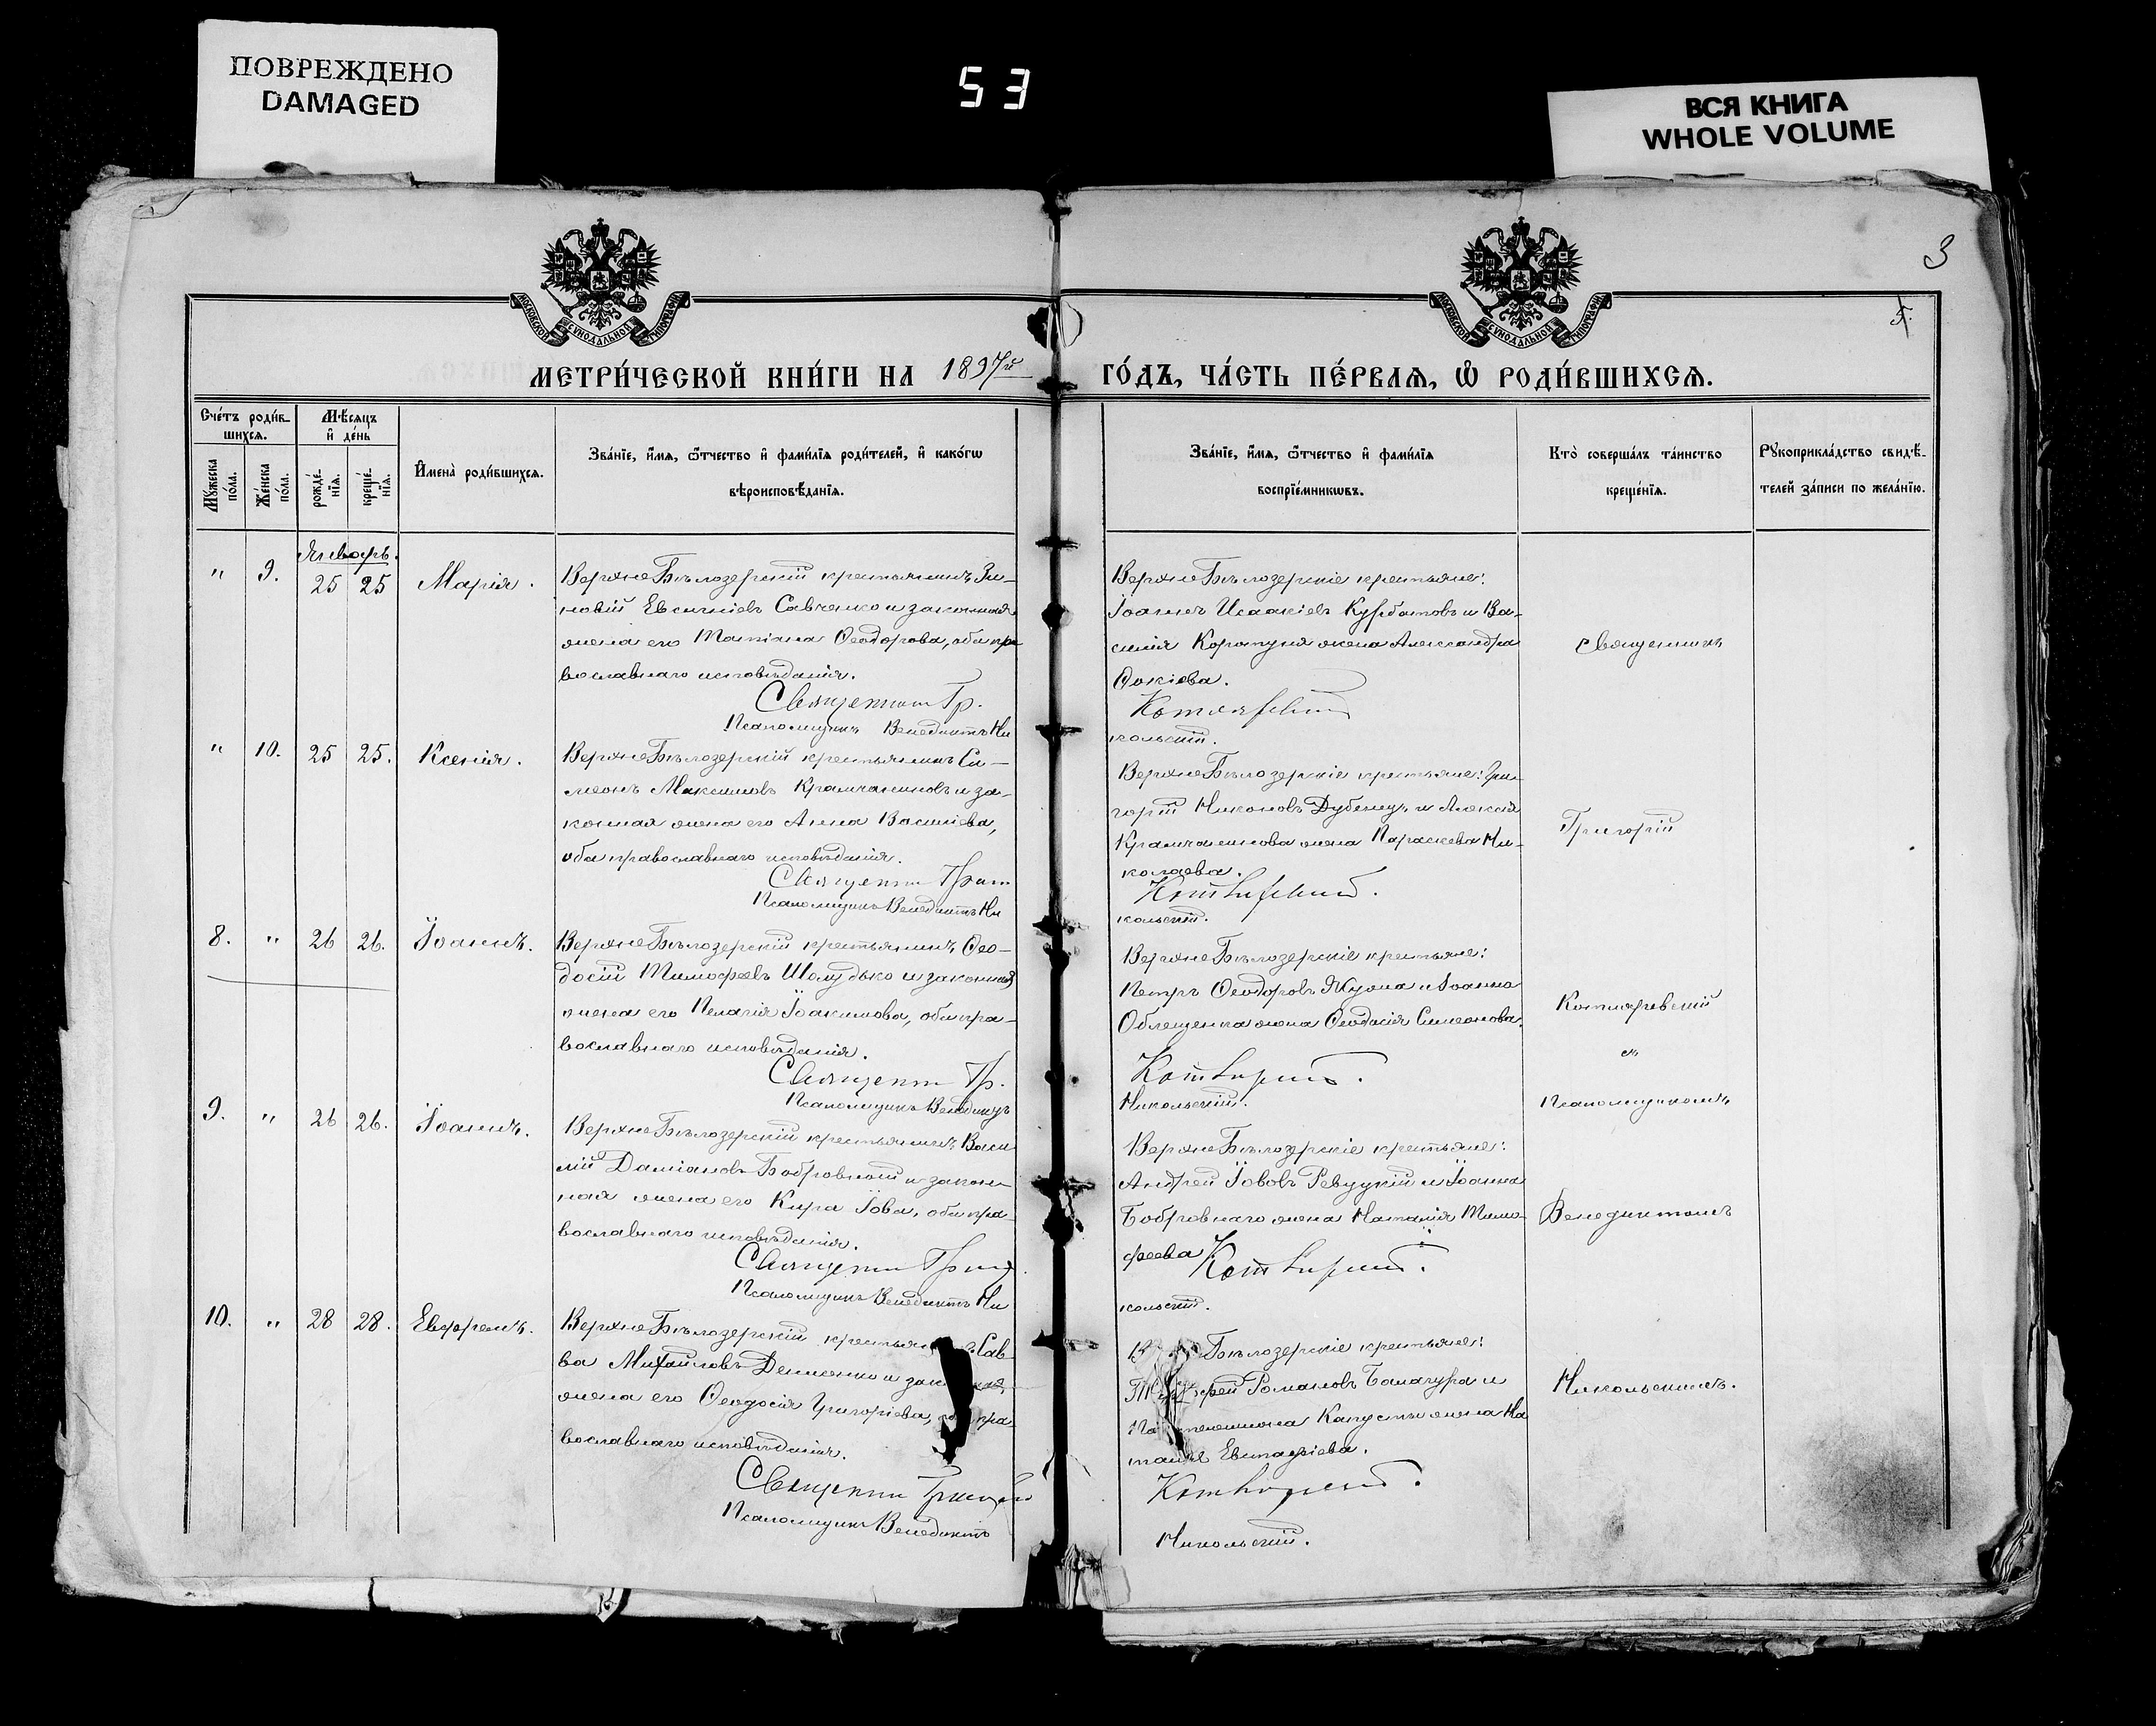 ПОВРЕЖДЕНО
DAMAGED
53
ВСЯ КНИГА
WHOLE VOLUME
3
МОСКОВСКОЙ СѴНОДАЛЬНОЙ ТИПОГРАФІИ
МОСКОВСКОЙ СѴНОДАЛЬНОЙ ТИПОГРАФІИ
МЕТРИ́ЧЕСКОЙ КНИ́ГИ НА 1897й
ГО́ДЪ, ЧА́СТЬ ПЕ́РВАѦ, Ѽ РОДИ́ВШИХСѦ.
Сче́тъ роди́в-
шихсѧ.
Мꙋжеска по́ла.
Же́нска по́ла.
Мѣ́сѧцъ
и҆ де́нь
рожде́-
нїѧ.
креще́-
нїѧ.
И҆мена̀ роди́вшихсѧ.
Зва́нїе, и҆́мѧ, ѻ҆́тчество и҆ фами́лїѧ роди́телей, и҆ како́гѡ
вѣроисповѣ́данїѧ.
Зва́нїе, и҆́мѧ, ѻ҆́тчество и҆ фами́лїѧ
воспрїе́мникѡвъ.
Кто̀ соверша́лъ та́инство
креще́нїѧ.
Рꙋкоприкла́дство свидѣ́-
телей за́писи по жела́нїю.
Январь.
" 9. 25 25 Марія.
Верхне Бѣлозерскій крестьянинъ Зи-
новій Евсигніевъ Савченко и законная
жена его Татіана Ѳеодорова, оба пра
вославнаго исповѣданія.
Священник Гр.
Псаломщикъ Венедиктъ Ни
Верхне Бѣлозерскіе крестьяне:
Іоаннъ Исаакіевъ Курбатовъ и Ва-
силія Коротуна жена Александра
Фокіева.
Котляревский
кольскій.
Священникъ
" 10. 25 25. Ксенія.
Верхне Бѣлозерскій крестьянинъ Си-
меонъ Максимовъ Крамчаниновъ и за-
конная жена его Анна Василіева,
оба православнаго исповѣданія.
Священник
Псаломщикъ Венедиктъ Ни
Верхне Бѣлозерскіе крестьяне: Гри-
горій Никоновъ Дубинецъ и Алексія
Крамчанинова жена Параскева Ни-
колаева.
Котляревский.
кольскій.
Григорій
8. " 26 26. Іоаннъ.
Верхне Бѣлозерскій крестьянинъ Ѳео-
досій Тимофеевъ Шолудько и законная
жена его Пелагія Іоакимова, оба пра-
вославнаго исповѣданія.
Священник Гр.
Псаломщикъ Венедиктъ
Верхне Бѣлозерскіе крестьяне:
Петръ Ѳеодоровъ и Іоанна
жена Ѳеодосія Симеонова.
Котляревский.
Никольскій.
Котляревскій
съ
Псаломщикомъ
9. " 26 26. Іоаннъ.
Верхне Бѣлозерскій крестьянинъ Васи
лій Даміановъ Бобровный и закон-
ная жена его Кира Іова, оба пра-
вославнаго исповѣданія.
Священник
Псаломщикъ Венедиктъ Ни
Верхне Бѣлозерскіе крестьяне:
Андрей Іововъ Ревуцкій и Іоанна
Бобровнаго жена Наталія Тимо-
феева
Котляревский.
кольскій.
Венедиктомъ
10. " 28 28. Евфремъ.
Верхне Бѣлозерскій крестьян Сав-
ва Михайловъ Демченко и зак
жена его Ѳеодосія Григоріева, пра-
вославнаго исповѣданія.
Священник
Псаломщикъ Венедиктъ
Бѣлозерскіе крестьяне:
Романовъ Балагура и
Капусты жена На
Евстафіева.
Котляревский.
Никольскій.
Никольскимъ.